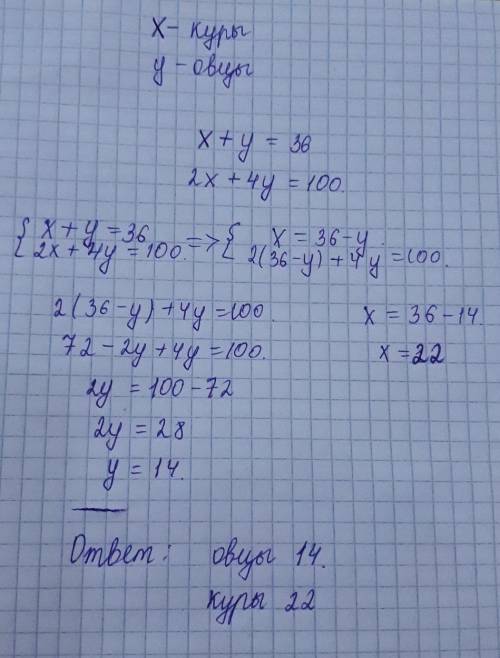 x - куры
y - овцы
x + y = 36
2x + 4y = 100.
{ x + y = 36 => { x = 36 - y.
{ 2x + 4y = 100. { 2(36 - y) + 4y = 100.
2(36 - y) + 4y = 100. x = 36 - 14.
72 - 2y + 4y = 100. x = 22
2y = 100 - 72
2y = 28
y = 14.
Ответ: овцы 14.
куры 22